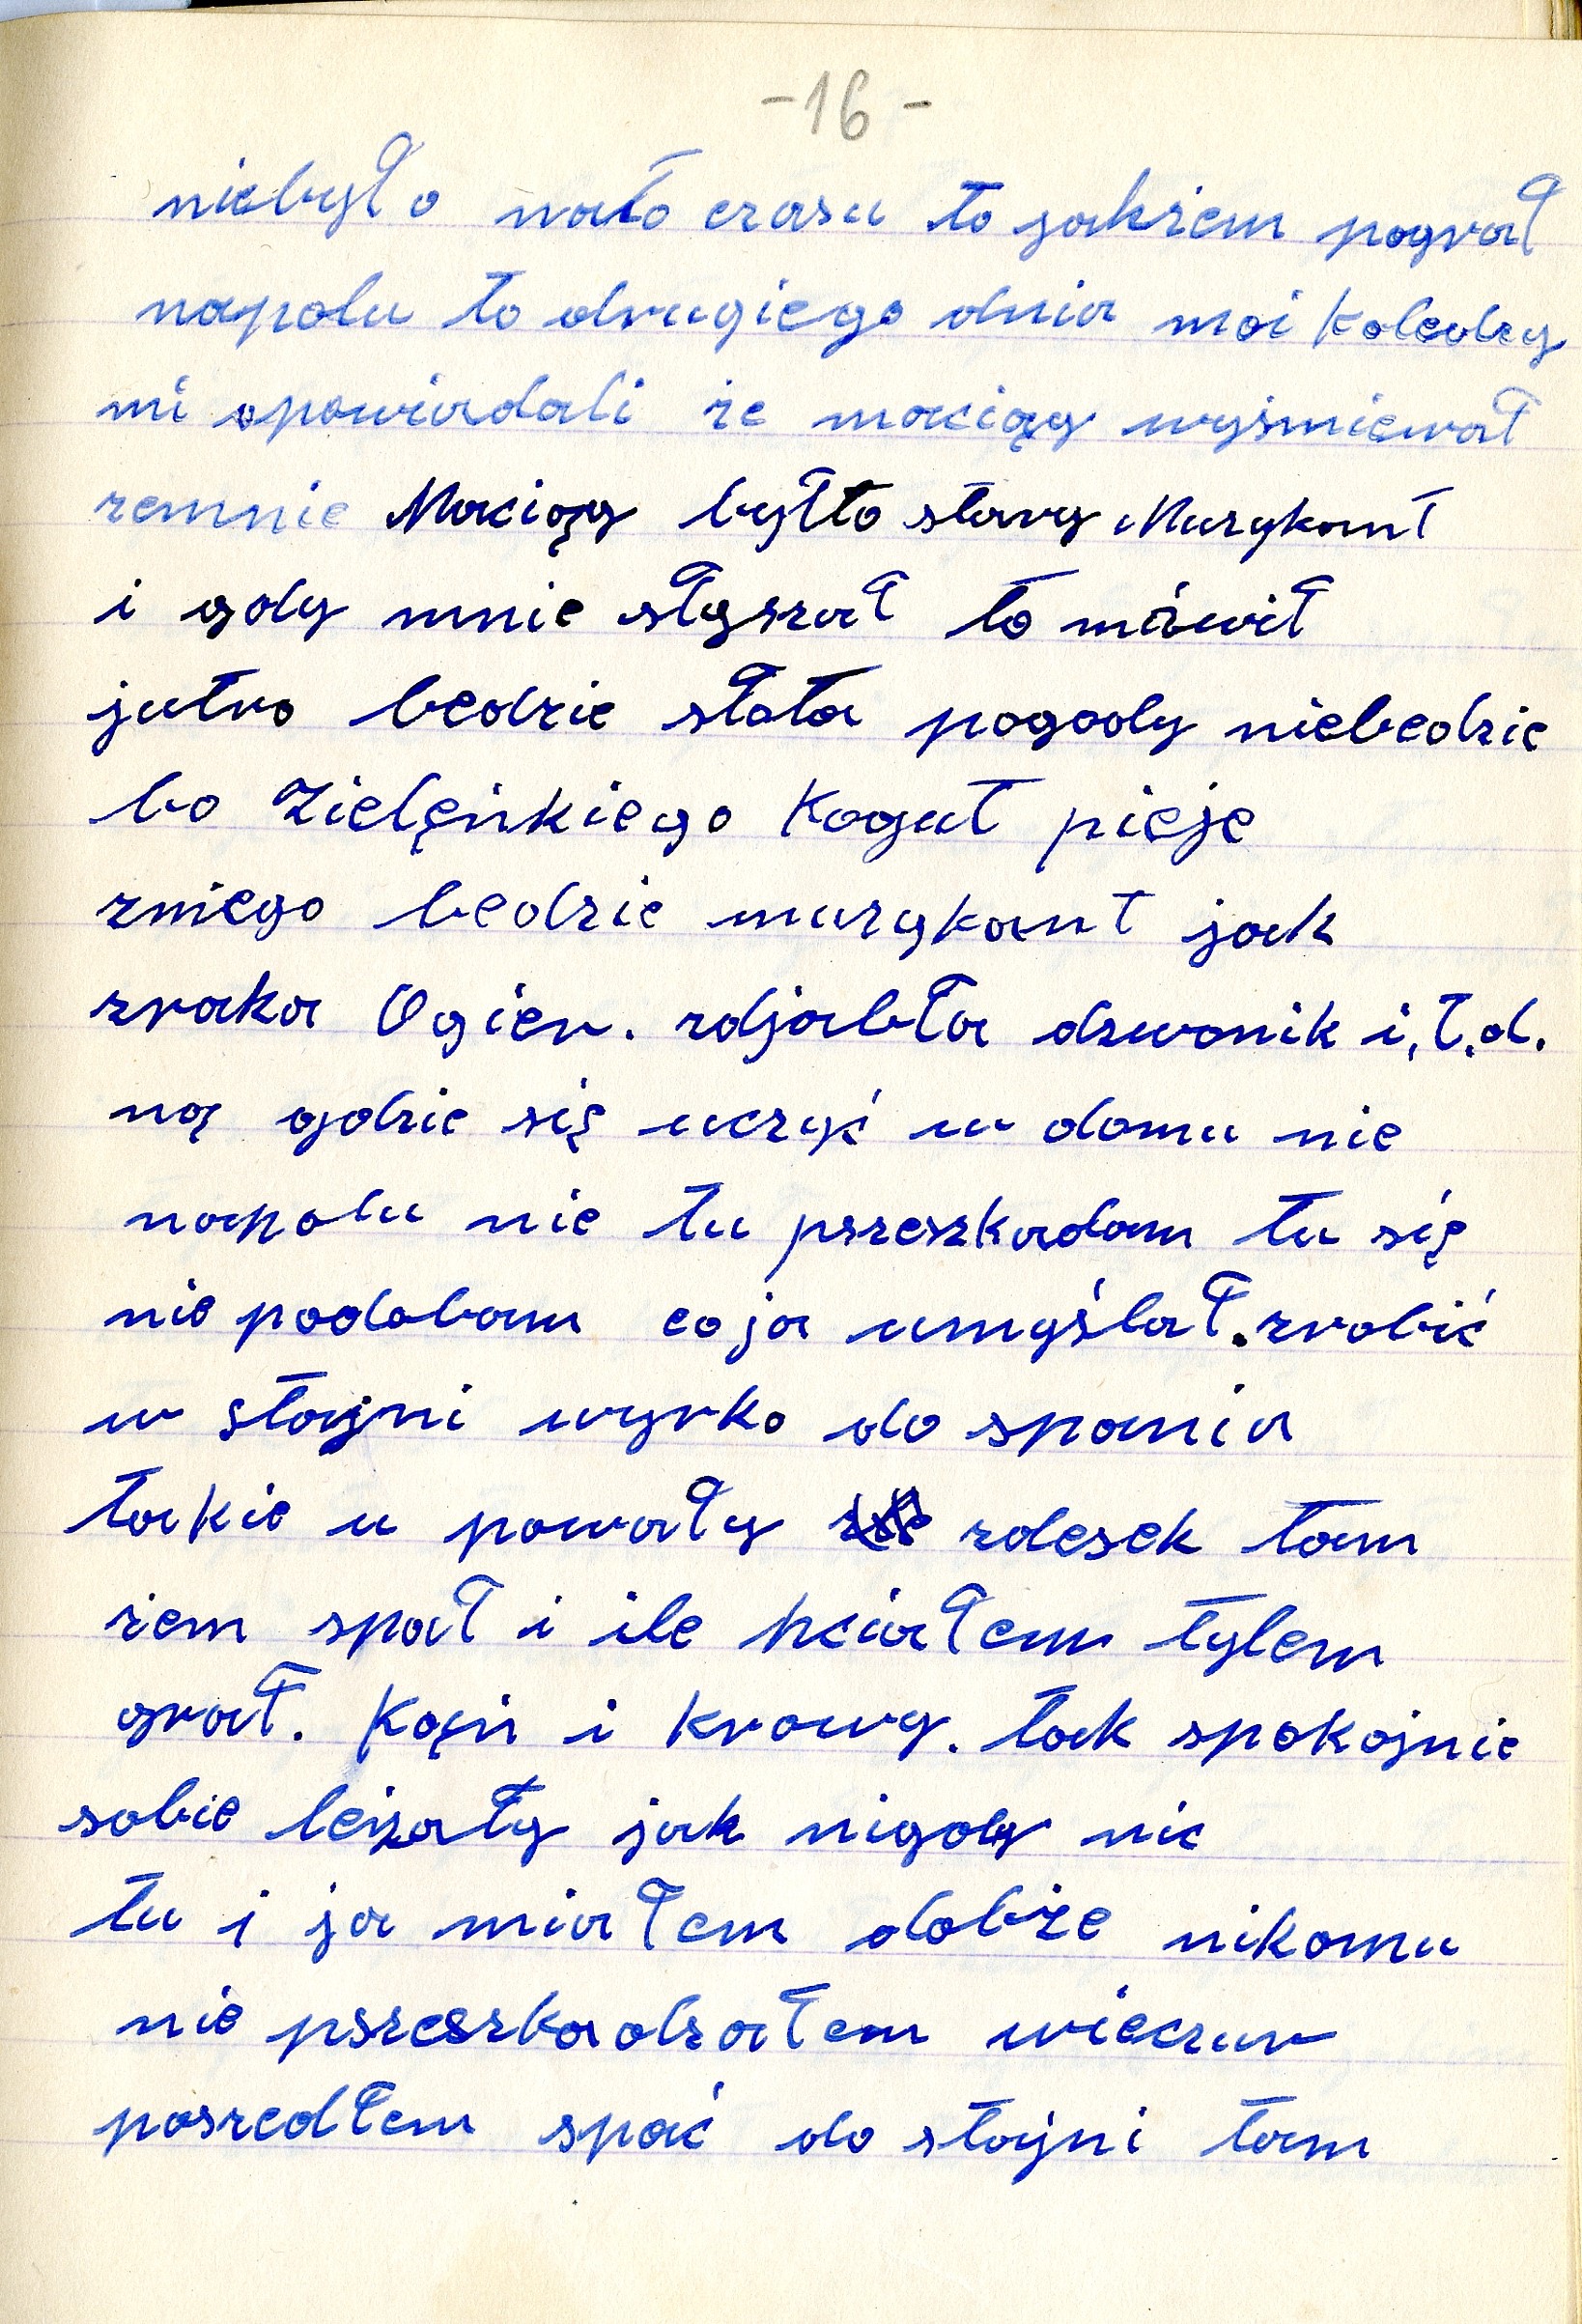 -16-
niebyło nato czasu to jakżem pograł
napolu to drugiego dnia moi Koledzy
mi opowiadali że maciąg wyśmiewał
zemnie Maciąg byłto stary Muzykant
i gdy mnie słyszał to mówił
jutro bedzie słota pogody niebedzie
bo Zielęńkiego Kogut pieje
zniego bedzie muzykant jak
zraka Ogier. zdjabła dzwonik i,t,d.
ną gdzie się uczyć w domu nie
napolu nie tu pszeszkadam tu się
nie podobam co ja umyślał. zrobić
w stajni wyrko do spania
takie u powały zdesek tam
żem spał i ile hciałem tylem
grał. Kąń i Krowy. tak spokojnie
sobie leżały jak nigdy nic
tu i ja miałem dobże nikomu
nie pszeszkadzałem wieczur
poszedłem spać do stajni tam